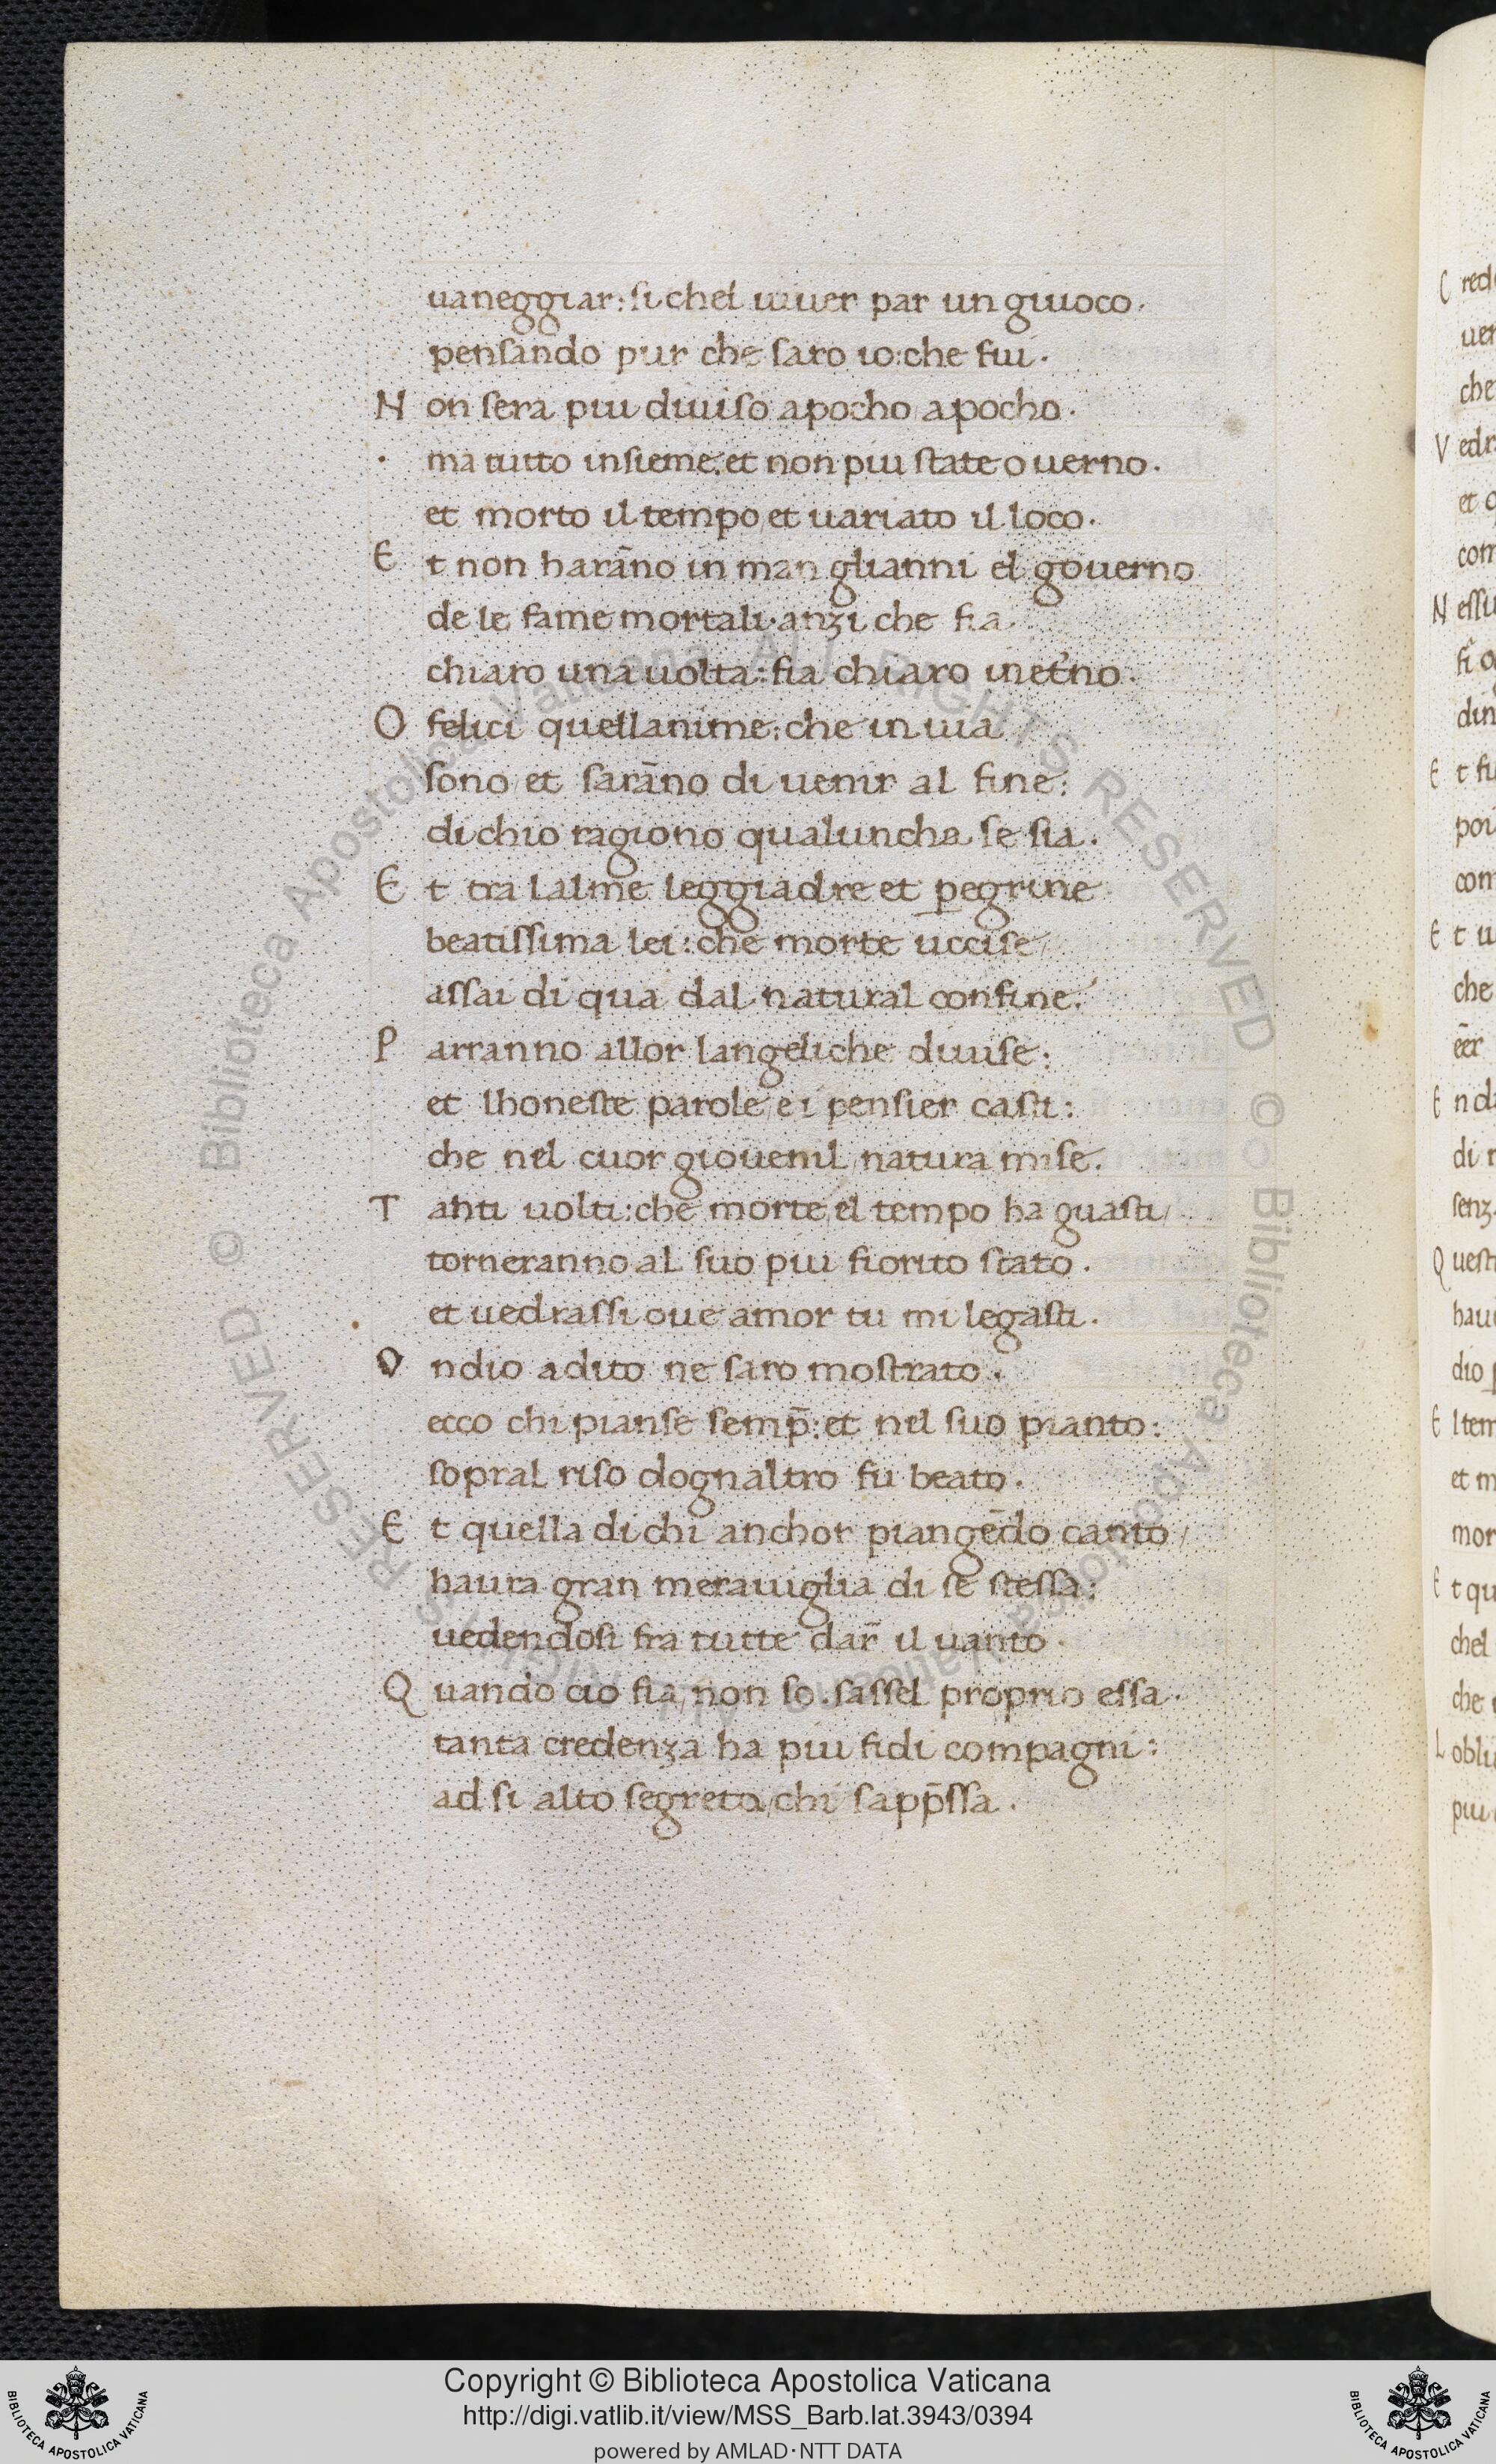 uaneggiar: si chel uiuer par un giuoco.
pensando pur che saro io: che fui.
N on sera piu diuiso apocho apocho.
ma tutto insieme: et non piu state o uerno.
et morto il tempo/et uariato il loco.
E t non harāno in man glianni el gouerno
de le fame mortali. anzi che fia
chiaro una uolta: fia chiaro inet̄no.
O felici quellanime: che in uia
sono/et sarāno di uenir al fine:
di chio ragiono qualuncha se sia.
E t tra lalme leggiadre et p̱egrine
beatissima lei: che morte uccise/
assai di qua dal natural confine.
P arranno allor langeliche diuise:
et lhoneste parole/e i pensier casti:
che nel cuor giouenil/natura mise.
T anti uolti: che morte/el tempo ha guasti/
torneranno al suo piu fiorito stato.
et uedrassi oue amor tu mi legasti.
O ndio adito ne saro mostrato.
ecco chi pianse semp̄: et nel suo pianto:
sopral riso dognaltro fu beato.
E t quella di chi anchor piangēdo canto/
haura gran merauiglia di se stessa:
uedendosi fra tutte dar̄ il uanto.
Q uando cio fia/non so. sassel proprio essa.
tanta credenza ha piu fidi compagni:
ad si alto segreto/chi sapp̄ssa.
C red
uer
che
V edr
et q
com
N essu
din
E t fu
poi
com
E t u
che
ēer
E nd
di r
senz
Q uest
hau
dio
E l tem
et m
mor
E t qu
chel
che
L obli
piu
© Biblioteca Apostolica Vaticana ALL RIGHTS RESERVED © Biblioteca Apostolica Vaticana ALL RIGHTS RESERVED
BIBLIOTECA APOSTOLICA VATICANA
Copyright © Biblioteca Apostolica Vaticana
http://digi.vatlib.it/view/MSS_Barb.lat.3943/0394
powered by AMLAD·NTT DATA
BIBLIOTECA APOSTOLICA VATICANA